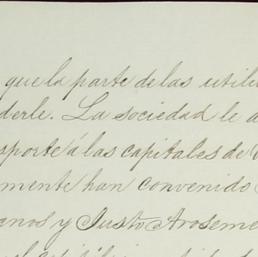 que la parte de las utili
derle. La sociedad le a
sporte á las capitales de
mente han convenido
anos y Justo Aroseme